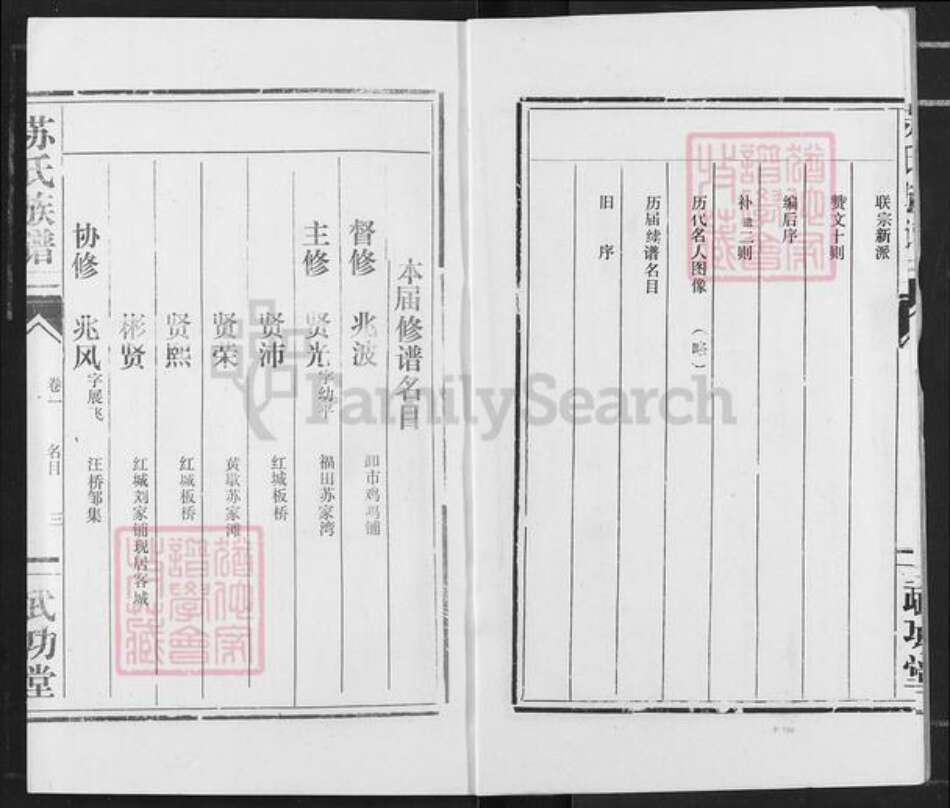 联宗新派
赞文十则
编后序
补遗二则
历代名人图像（略）
历届续谱名目
旧序
武功堂
本届修谱名目
督修 兆波
主修 贤光 字幼平 福田苏家湾
贤沛 红城板桥
贤荣 黄歇苏家滩
贤熙 红城板桥
彬贤 红城刘家铺现居容城
协修 兆风 字展飞 汪桥邹集
苏氏族谱
卷一 名目 三
武功堂
FamilySearch